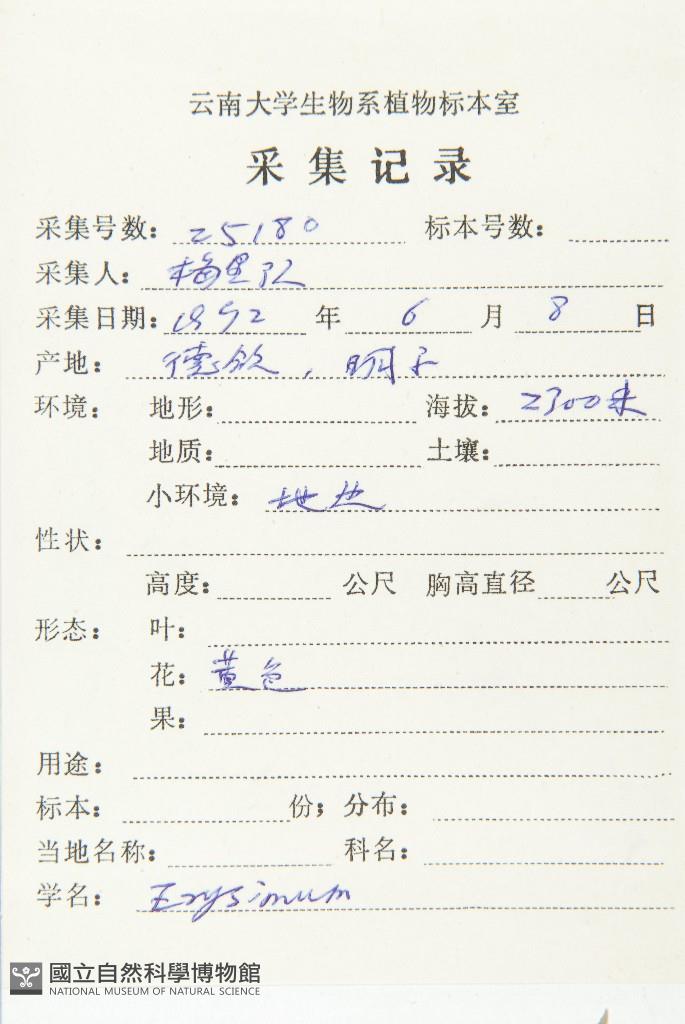 云南大学生物系植物标本室
采集记录
采集号数: 25180 标本号数:
采集人: 梅里队
采集日期: 1992 年 6 月 8 日
产地: 德钦, 明永
环境: 地形: 海拔: 2300米
地质: 土壤:
小环境: 地边
性状:
高度: 公尺 胸高直径 公尺
形态: 叶:
花: 黄色
果:
用途:
标本: 份; 分布:
当地名称: 科名:
学名: Erysimum
國立自然科學博物館
NATIONAL MUSEUM OF NATURAL SCIENCE